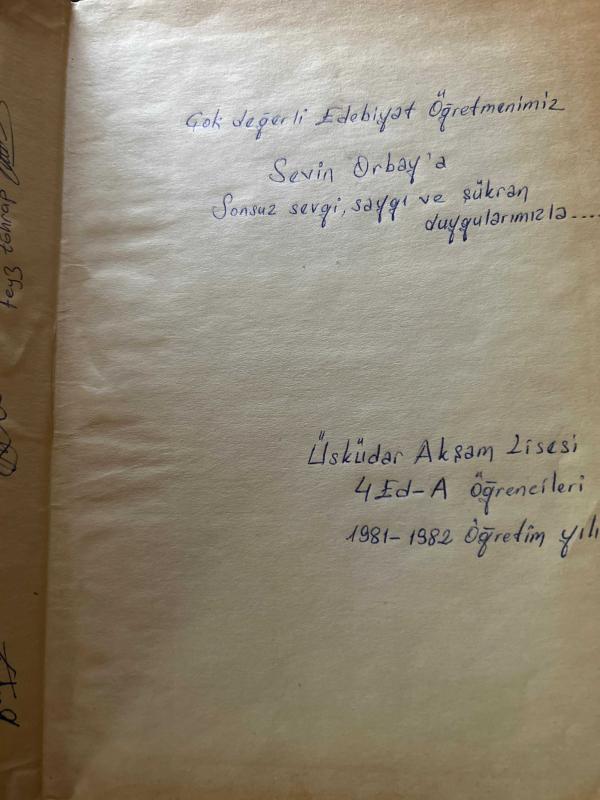 Çok değerli Edebiyat Öğretmenimiz
Sevin Orbay'a
Sonsuz sevgi, saygı ve şükran
duygularımızla....
Üsküdar Akşam Lisesi
4 Ed-A Öğrencileri
1981-1982 Öğretim yılı